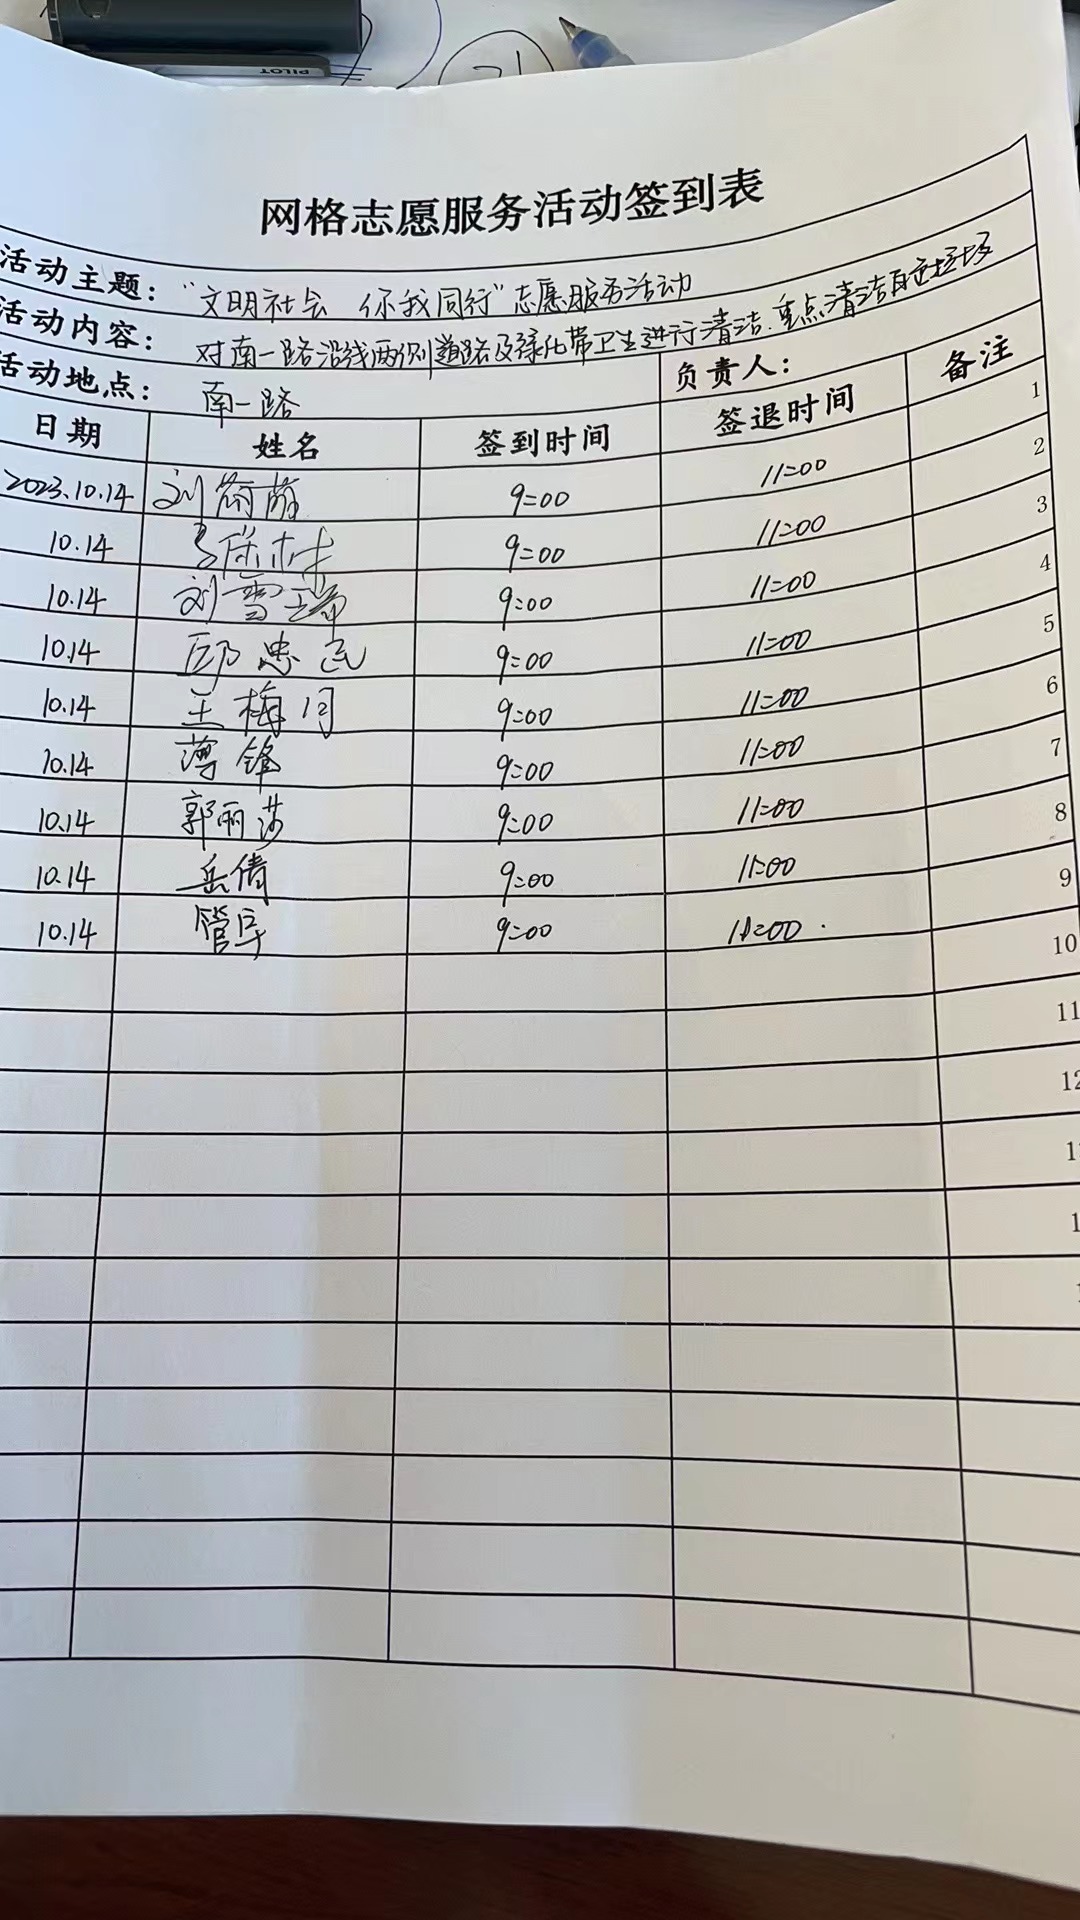 PILOT
网格志愿服务活动签到表
活动主题： “文明社会 你我同行”志愿服务活动
活动内容： 对南一路沿线两侧道路及绿化带卫生进行清洁.重点清洁
活动地点： 南一路 负责人：
日期 姓名 签到时间 签退时间 备注
2023.10.14 刘 9:00 11:00 1
10.14 9:00 11:00 2
10.14 刘雪瑞 9:00 11:00 3
10.14 邱忠民 9:00 11:00 4
10.14 王梅月 9:00 11:00 5
10.14 薄锋 9:00 11:00 6
10.14 郭丽莎 9:00 11:00 7
10.14 岳倩 9:00 11:00 8
10.14 管 9:00 11:00 9
10
11
12